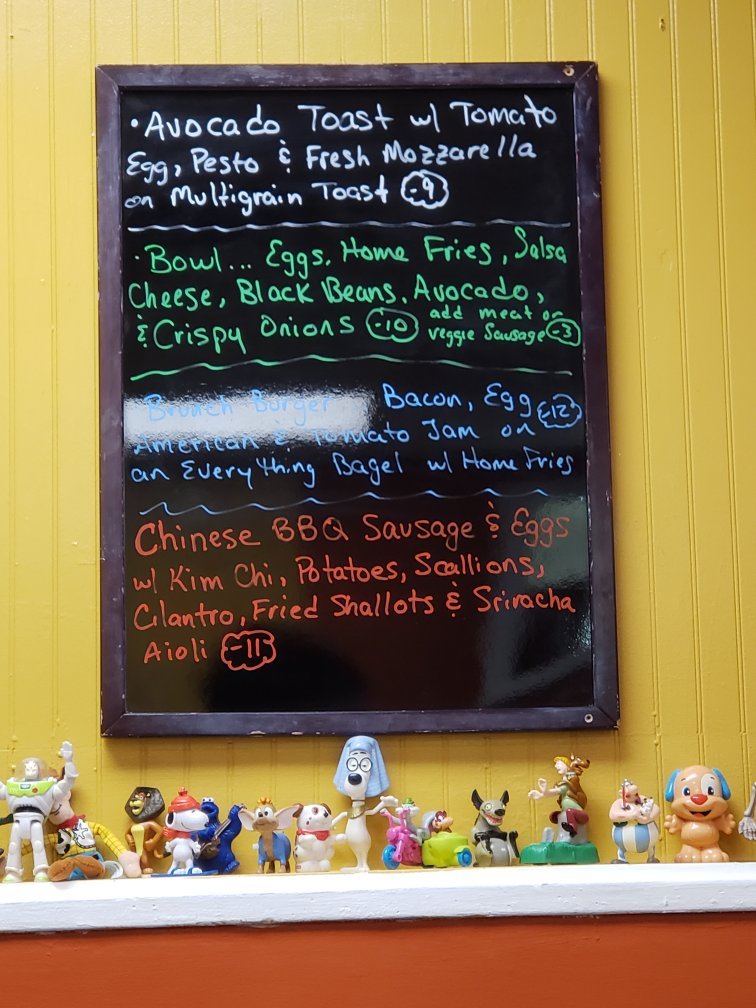 ·Avocado Toast w/ Tomato
Egg, Pesto & Fresh Mozzarella
on Multigrain Toast -9
·Bowl... Eggs, Home Fries, Salsa
Cheese, Black Beans, Avocado,
& Crispy Onions -10 add meat or
veggie Sausage -3
Brunch Burger Bacon, Egg -12
American & Tomato Jam on
an Everything Bagel w/ Home Fries
Chinese BBQ Sausage & Eggs
w/ Kim Chi, Potatoes, Scallions,
Cilantro, Fried Shallots & Sriracha
Aioli -11